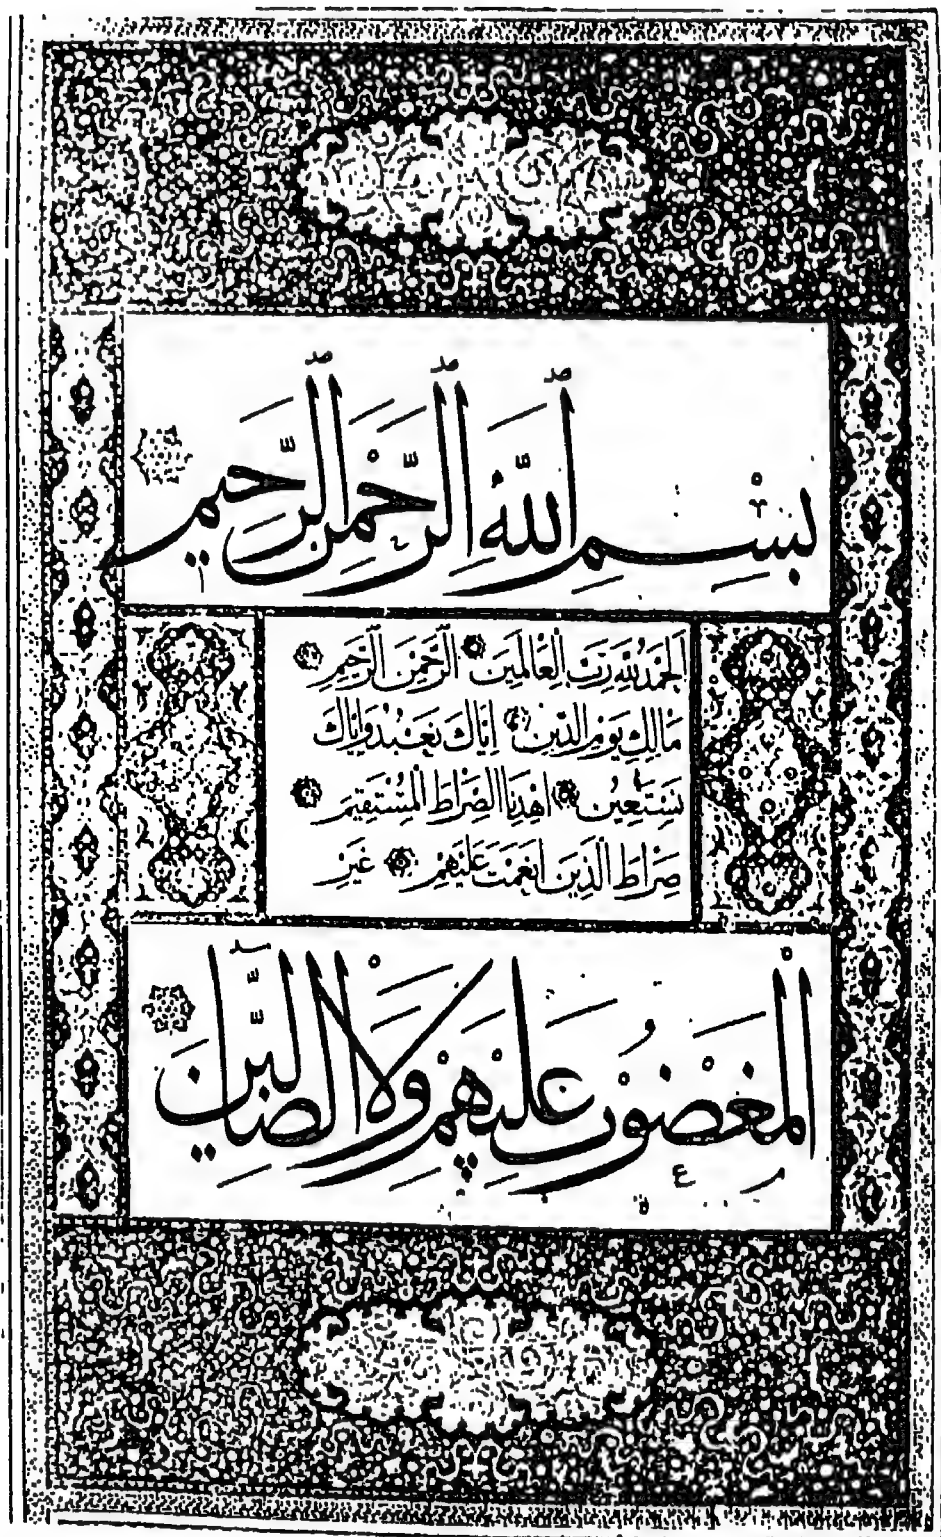 بِسْمِ اللَّهِ الرَّحْمَنِ الرَّحِيمِ
اَلْحَمْدُ لِلَّهِ رَبِّ الْعَالَمِينَ الرَّحْمَنِ الرَّحِيمِ
مَالِكِ يَوْمِ الدِّينِ اِيَّاكَ نَعْبُدُ وَاِيَّاكَ
نَسْتَعِينُ اهْدِنَا الصِّرَاطَ الْمُسْتَقِيمَ
صِرَاطَ الَّذِينَ اَنْعَمْتَ عَلَيْهِمْ غَيْرِ
الْمَغْضُوبِ عَلَيْهِمْ وَلَا الضَّالِّينَ